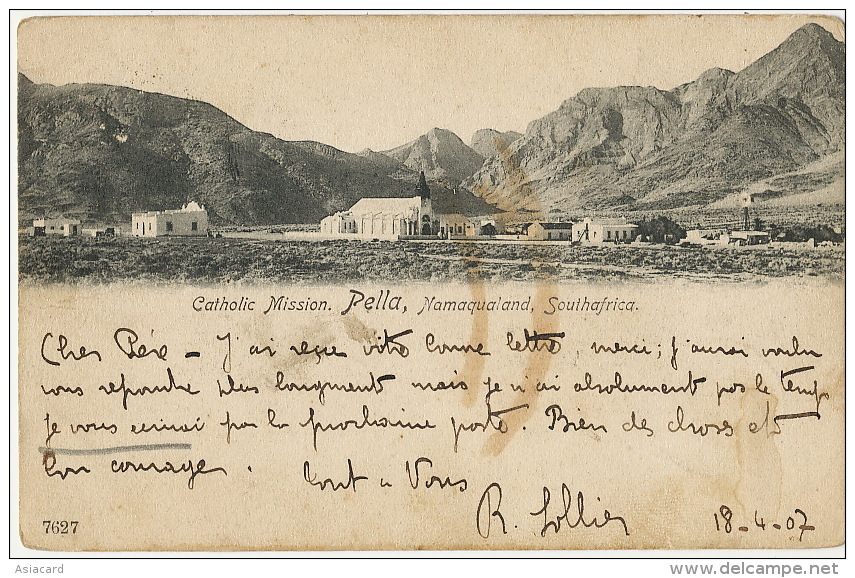 Catholic Mission. Pella, Namaqualand, Southafrica.
Cher Père - J'ai reçue votre bonne lettre, merci; J'aurai voulu
vous repondre plus longment mais je n'ai absolument pas le temps
Je vous écrirai par la prochaine poste. Bien des choses et
bon courage.
Tout a Vous
R. Sollier 18-4-07
7627
Asiacard
www.delcampe.net